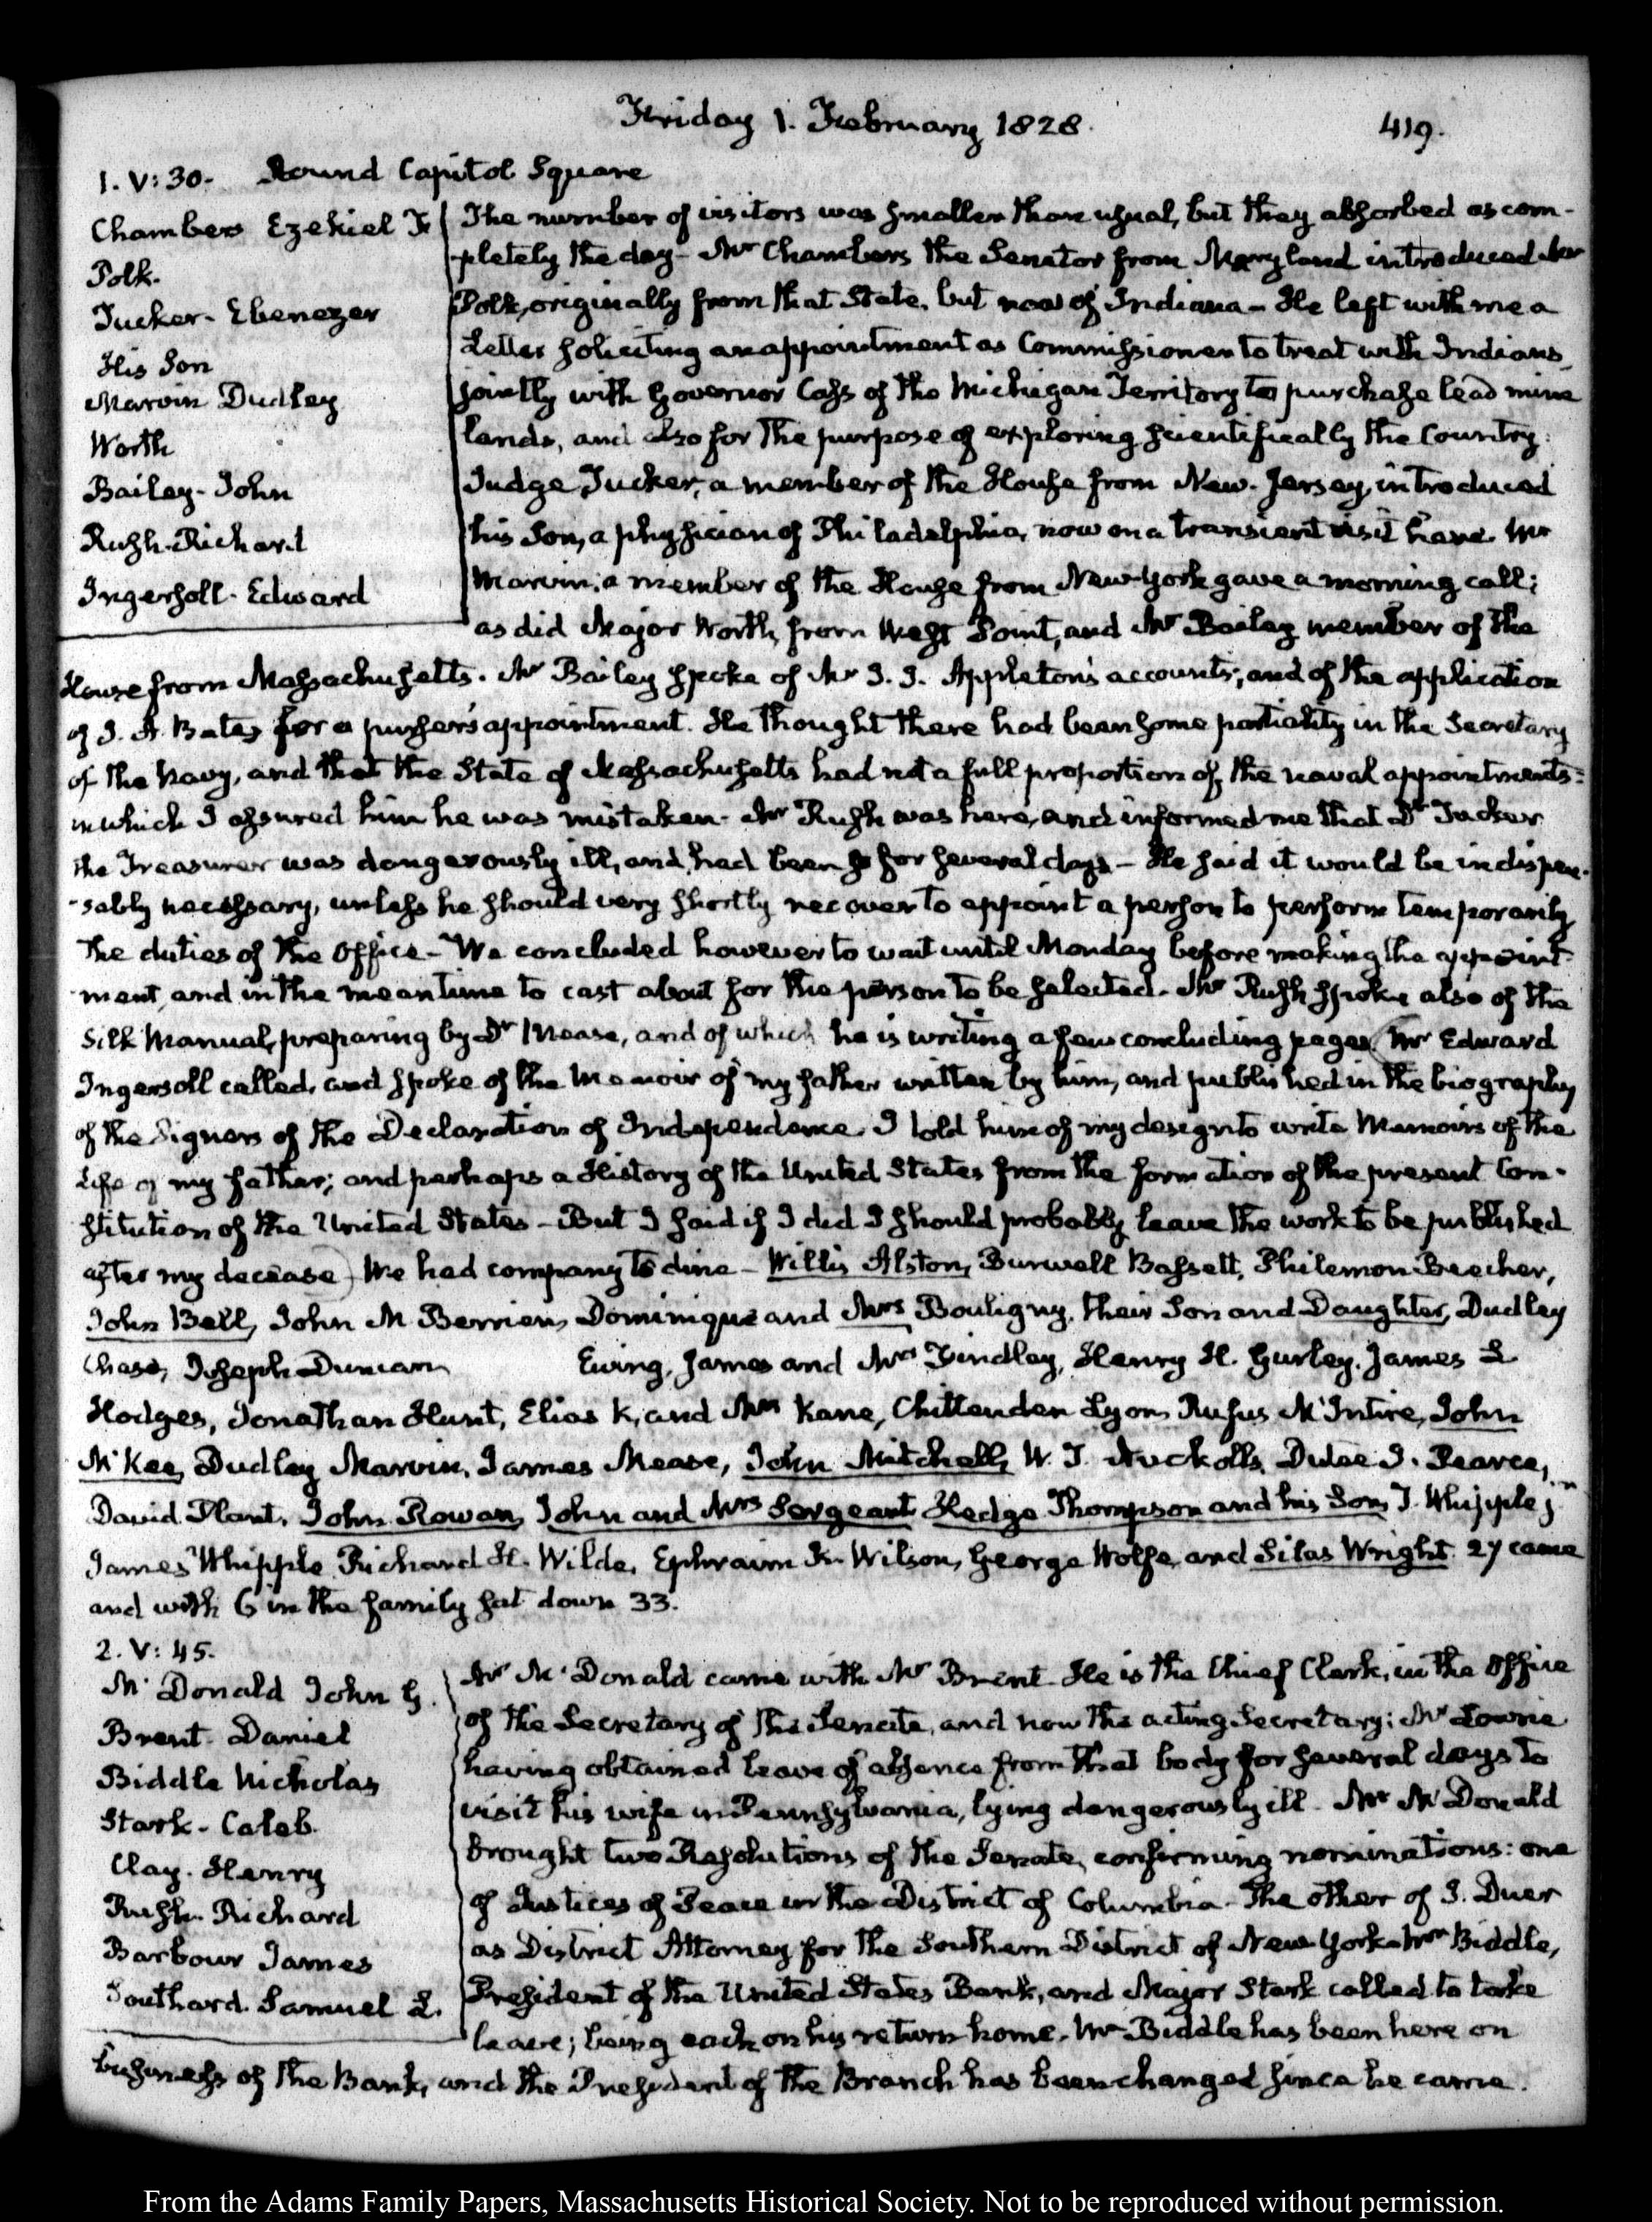 Friday 1. February 1828.
419.
1. V: 30. Round Capitol Square
Chambers Ezekiel F
Polk.
Tucker- Ebenezer
His Son
Marvin Dudley
Worth
Bailey- John
Rush. Richard
Ingersoll- Edward
The number of visitors was smaller than usual, but they absorbed as com-
pletely the day- Mr Chambers the Senator from Maryland introduced Mr
Polk, originally from that State, but now of Indiana- He left with me a
Letter soliciting an appointment as Commissioner to treat with Indians,
jointly with Governor Cass of the Michigan Territory to purchase lead mine
lands, and also for the purpose of exploring scientifically the Country.
Judge Tucker, a member of the House from New-Jersey, introduced
his Son, a physician of Philadelphia, now on a transient visit here. Mr
Marvin, a member of the House from New-York gave a morning call;
as did Major Worth, from West Point, and Mr Bailey member of the
House from Massachusetts. Mr Bailey spoke of Mr J. J. Appleton's accounts; and of the application
of J. A. Bates for a purser's appointment. He thought there had been some partiality in the Secretary
of the Navy, and that the State of Massachusetts had not a full proportion of the naval appointments:
in which I assured him he was mistaken- Mr Rush was here, and informed me that Dr Tucker
the Treasurer was dangerously ill, and had been so for several days- He said it would be indispen-
-sably necessary, unless he should very shortly recover to appoint a person to perform temporarily
the duties of the Office- We concluded however to wait until Monday before making the appoint-
ment, and in the mean time to cast about for the person to be selected. Mr Rush spoke also of the
Silk Manual, preparing by Dr Mease, and of which he is writing a few concluding pages (Mr Edward
Ingersoll called, and spoke of the Memoir of my father written by him, and published in the biography
of the Signers of the Declaration of Independence. I told him of my design to write Memoirs of the
Life of my father; and perhaps a History of the United States from the formation of the present Con-
stitution of the United States- But I said if I did I should probably leave the work to be published
after my decease) We had company to dine- Willis Alston, Burwell Bassett, Philemon Beecher,
John Bell, John M Berrien, Dominique and Mrs Bouligny, their Son and Daughter, Dudley
Chase, Joseph Duncan Ewing, James and Mrs Findlay, Henry H. Gurley, James L
Hodges, Jonathan Hunt, Elias K, and Mrs Kane, Chittenden Lyon, Rufus McIntire, John
McKee, Dudley Marvin, James Mease, John Mitchell, W. T. Nuckolls, Dutee J. Pearce,
David Plant, John Rowan, John and Mrs Sergeant, Hedge Thompson and his Son, J. Whipple jn
James Whipple, Richard H. Wilde, Ephraim K. Wilson, George Wolfe, and Silas Wright. 27 came
and with 6 in the family sat down 33.
2. V: 45.
McDonald John G.
Brent- Daniel
Biddle Nicholas
Stark- Caleb.
Clay. Henry
Rush. Richard
Barbour James
Southard. Samuel L.
Mr McDonald came with Mr Brent. He is the Chief Clerk, in the Office
of the Secretary of the Senate, and now the acting Secretary: Mr Lowrie
having obtained leave of absence from that body for several days to
visit his wife in Pennsylvania, lying dangerously ill- Mr McDonald
brought two Resolutions of the Senate, confirming nominations: one
of Justices of Peace in the District of Columbia- The other of J. Duer
as District Attorney for the Southern District of New York- Mr Biddle,
President of the United States Bank, and Major Stark called to take
leave; being each on his return home. Mr Biddle has been here on
business of the Bank, and the President of the Branch has been changed since he came.
From the Adams Family Papers, Massachusetts Historical Society. Not to be reproduced without permission.